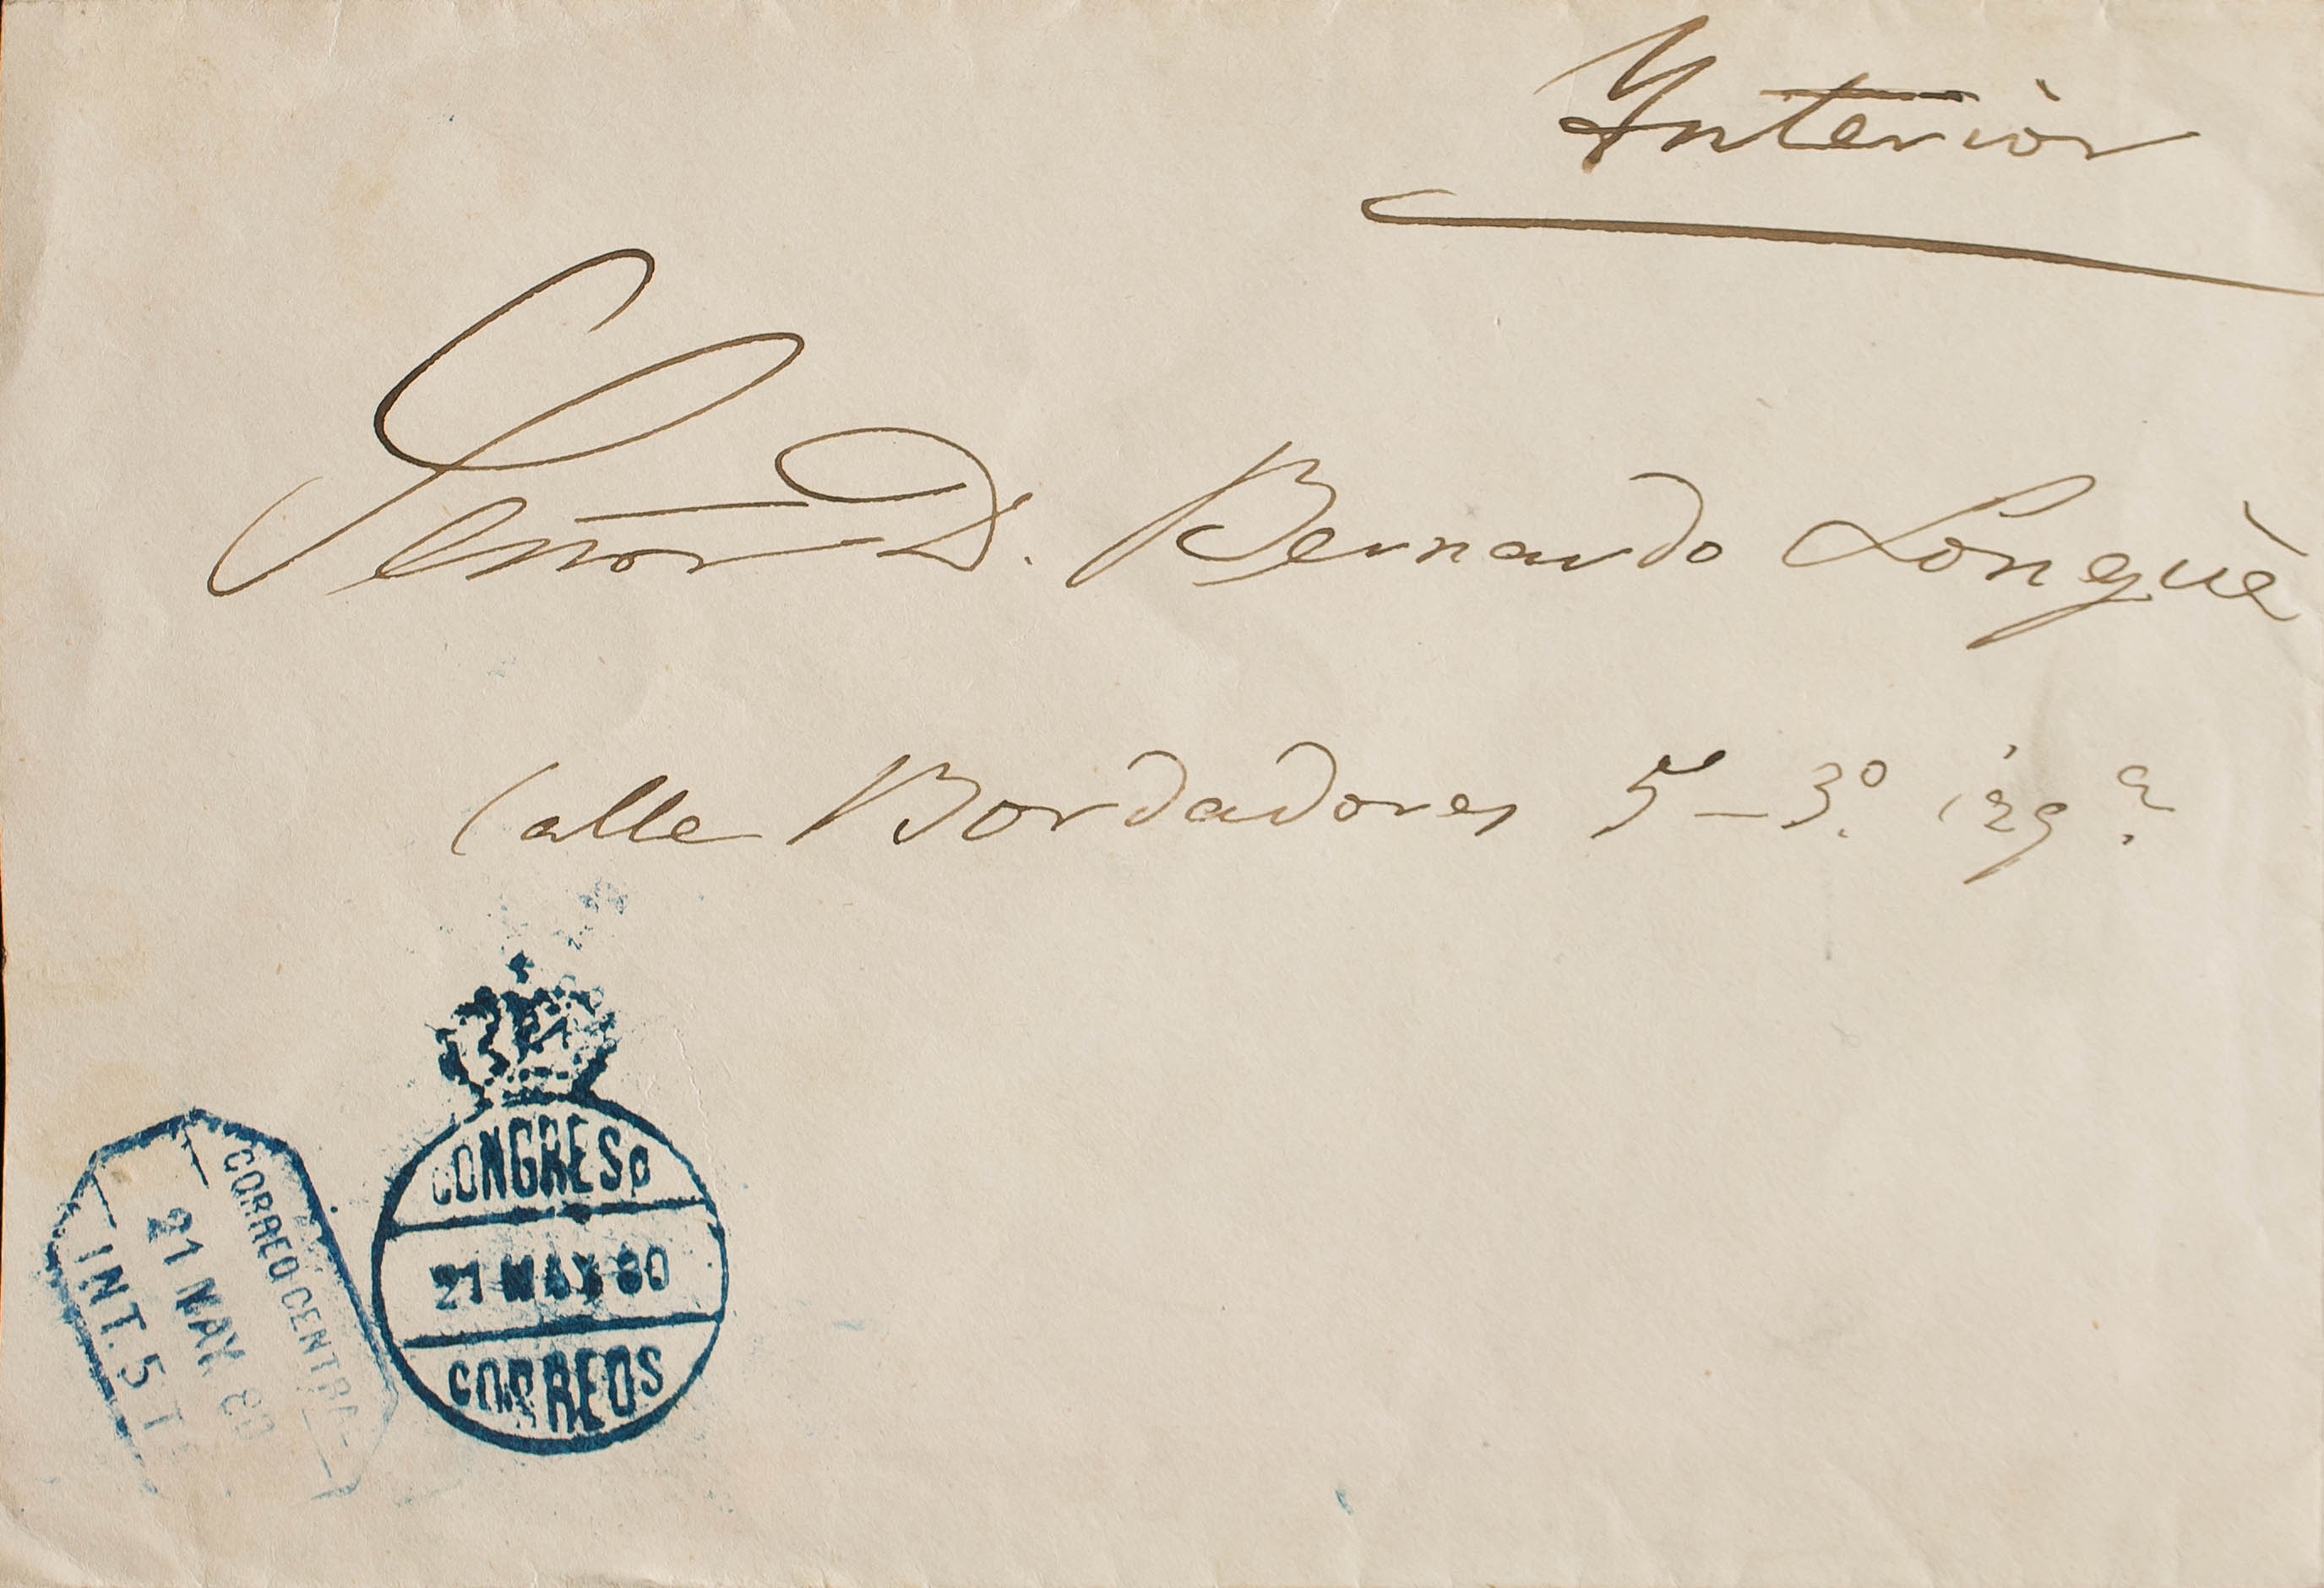 Ynterior
Señor D. Bernardo Longuè
Calle Bordadores 5-3.º izq.ª
CONGRESO
21 MAY 80
CORREOS
CORREO CENTRAL
21 MAY 80
INT. 5 T